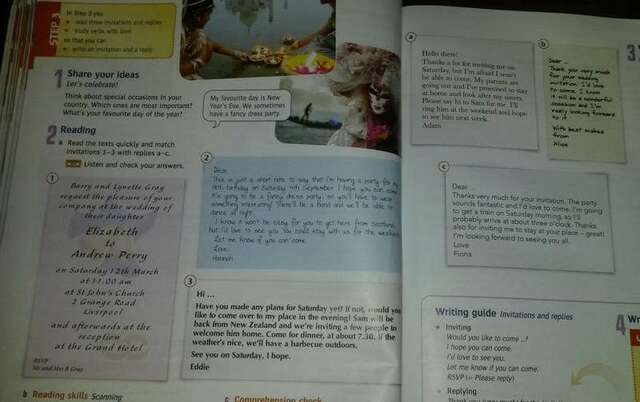 STEP 3
In Step 3 you
read three invitations and replies
study verbs with
so that you can
write an invitation and a reply
1 Share your ideas
Let's celebrate!
Think about special occasions in your
country. Which ones are most important?
What's your favourite day of the year?
My favourite day is New
Year's Eve. We sometimes
have a fancy dress party.
2 Reading
a Read the texts quickly and match
invitations 1–3 with replies a–c.
Listen and check your answers.
1
Barry and Lynette Gray
request the pleasure of your
company at the wedding of
their daughter
Elizabeth
to
Andrew Perry
on Saturday 12th March
at 11.00 am
at St John's Church
2 Grange Road
Liverpool
and afterwards at the
reception
at the Grand Hotel
RSVP
Mr and Mrs B Gray
2
Dear
This is just a short note to say that I'm having a party for my
birthday on Saturday 4th September. I hope you can come.
It's going to be a fancy dress party, so you'll have to wear
something interesting! There'll be a band and we'll be able to
dance all night.
I know it won't be easy for you to get here from Scotland,
but I'd love to see you. You could stay with us for the weekend.
Let me know if you can come.
Love
Hannah
3
Hi ...
Have you made any plans for Saturday yet? If not, would you
like to come over to my place in the evening? Sam will be
back from New Zealand and we're inviting a few people to
welcome him home. Come for dinner, at about 7.30. If the
weather's nice, we'll have a barbecue outdoors.
See you on Saturday, I hope.
Eddie
b Reading skills Scanning
c Comprehension check
a
Hello there!
Thanks a lot for inviting me on
Saturday, but I'm afraid I won't
be able to come. My parents are
going out and I've promised to stay
at home and look after my sisters.
Please say hi to Sam for me. I'll
ring him at the weekend and hope
to see him next week.
Adam
b
Dear ...
Thank you very much
for your wedding
invitation. I'd love
to come. I know
it will be a wonderful
occasion and I'm
really looking forward
to it.
With best wishes
from
Alice
c
Dear ...
Thanks very much for your invitation. The party
sounds fantastic and I'd love to come. I'm going
to get a train on Saturday morning, so I'll
probably arrive at about three o'clock. Thanks
also for inviting me to stay at your place – great!
I'm looking forward to seeing you all.
Love
Fiona
Writing guide Invitations and replies
Inviting
Would you like to come ...?
I hope you can come.
I'd love to see you.
Let me know if you can come.
RSVP (= Please reply)
Replying
3
4 Wr